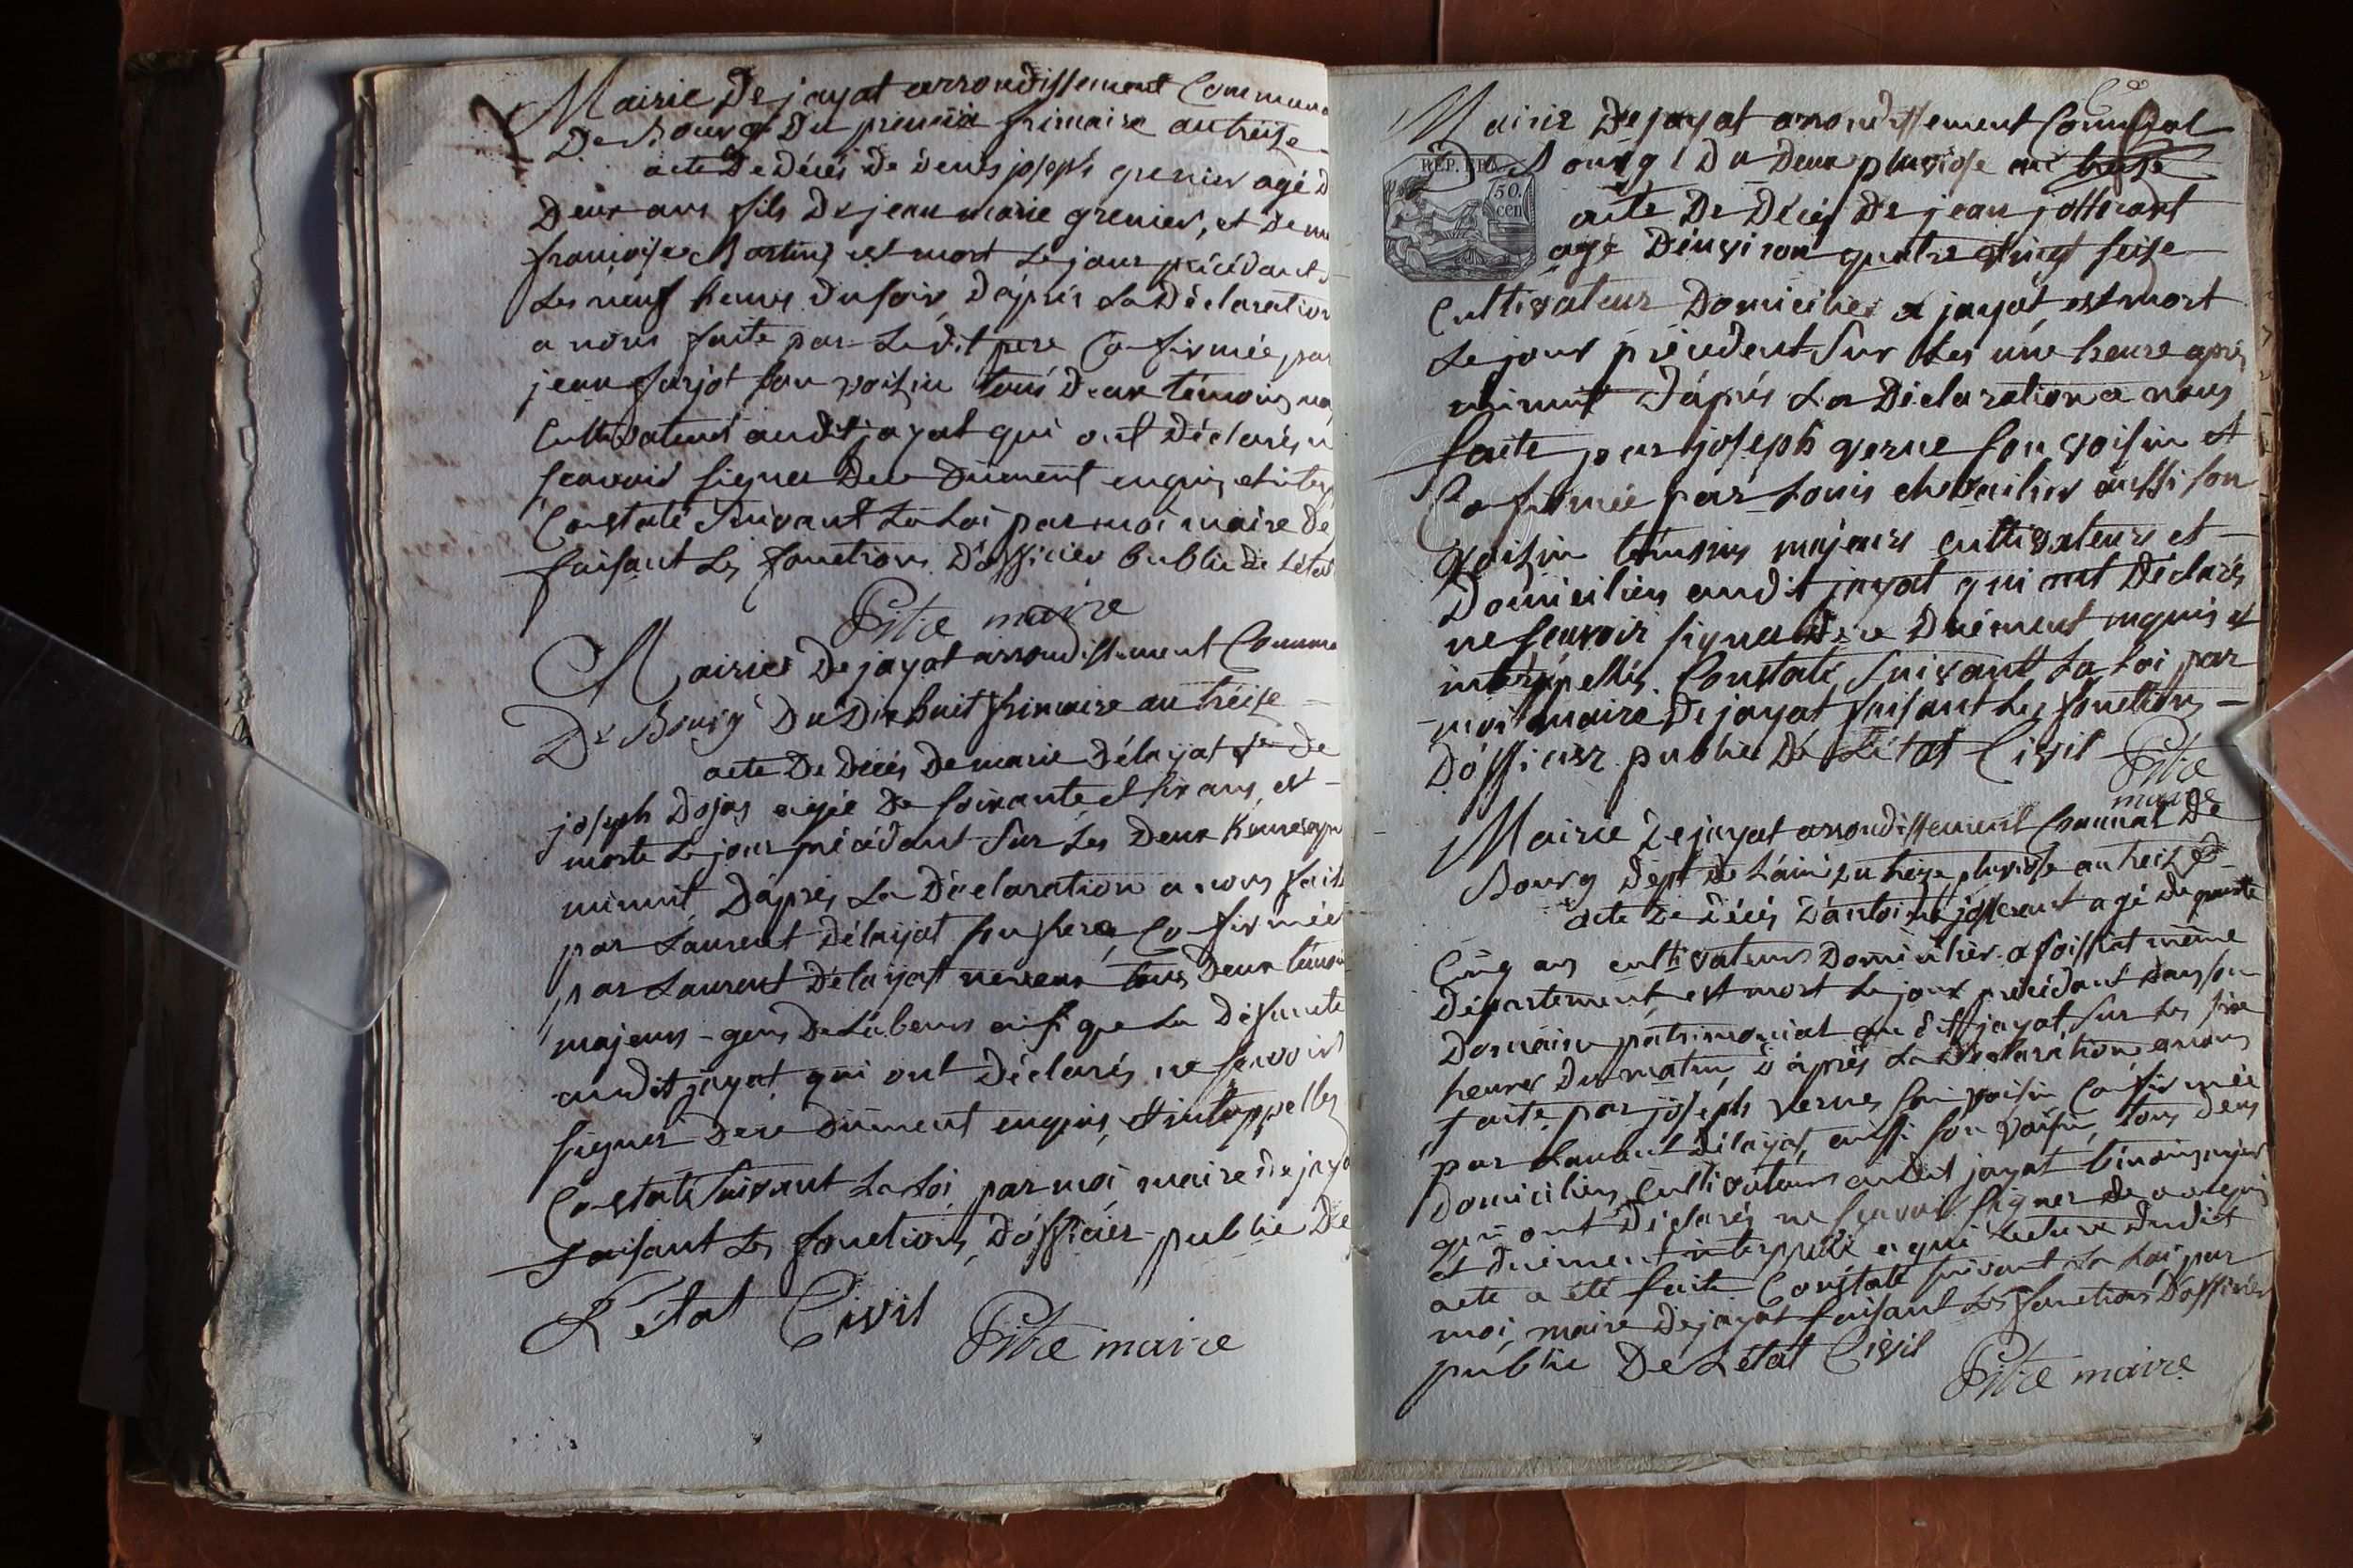 Mairie De jayat arrondissement Commun
De Bourg Du premier frimaire an treise
acte De Décés de denis joseph grenier agé D
Deux ans fils De jean marie grenier, et De
françoise Martin, est mort Le jour précédant
Les neuf heures Du soir, D'aprés La Déclaration
a nous faite par Le dit pere Confirmée par
jean surjot son voisin tous deux témoins
Cultivateurs audit jayat qui ont Déclarés
scavoir signer De ce Duement enquis et
Constaté suivant La Loi par moi maire de
faisant Les fonctions D'officier public de L'état
Pitre maire
Mairie De jayat arrondissement Commu
De Bourg Du Dix huit frimaire an treise
acte De Décés De marie Délayat fe De
joseph Dojas agée De soixante et six ans, est
morte Le jour précédant sur Les Deux heures
minuit, D'aprés La Déclaration a nous faite
par Laurent Délayat son frere, Confirmée
par Laurent Délayat neveux tous Deux témoi
majeurs gens De Labeur ainsi que La Défuncte
audit jayat qui ont Déclarés ne scavoir
signer De ce Duement enquis, et interppellés
Constaté suivant La Loi par moi maire De jaya
faisant Les fonctions D'officier public De
L'état Civil
Pitre maire
Mairie De jayat arrondissement Communal
De Bourg Du Deux pluviose an treise
REP. FRA.
50.
cen
acte De Décés De jean jotterant
agé D'environ quatre vingt seise
Cultivateur Domicilier a jayat est mort
Le jour précedent sur Les une heure aprés
minuit D'aprés La Déclaration a nous
faite par joseph verne son voisin et
Confirmée par Louis chevailier aussi son
voisin témoins majeurs cultivateurs et
Domiciliers audit jayat qui ont Déclarés
ne scavoir signer De ce Duement enquis et
interppellés Constaté suivant La Loi par
moi maire De jayat faisant Les fonctions
D'officier public De L'état Civil Pitre
maire
Mairie De jayat arrondissement Communal De
Bourg Dept De L'ain Du treize pluviose an treize
acte De Décés D'antoine jotterant agé De quarante
Cinq ans cultivateur Domicilier a foissiat même
Département, est mort Le jour précédant dans son
Domaine patrimonial au dit jayat, sur Les six
heures Du matin, D'aprés La Déclaration a nous
faite par joseph verne son voisin Confirmée
par Laurent Délayat, aussi son voisin, tous deux
Domiciliers, Cultivateurs audit jayat témoins majeurs
qui ont Déclarés ne scavoir signer De ce enquis
et Duement interppellé a qui Lecture Dudit
acte a été faite Constaté suivant La Loi par
moi, maire De jayat faisant Les fonctions D'officier
public De L'état Civil
Pitre maire